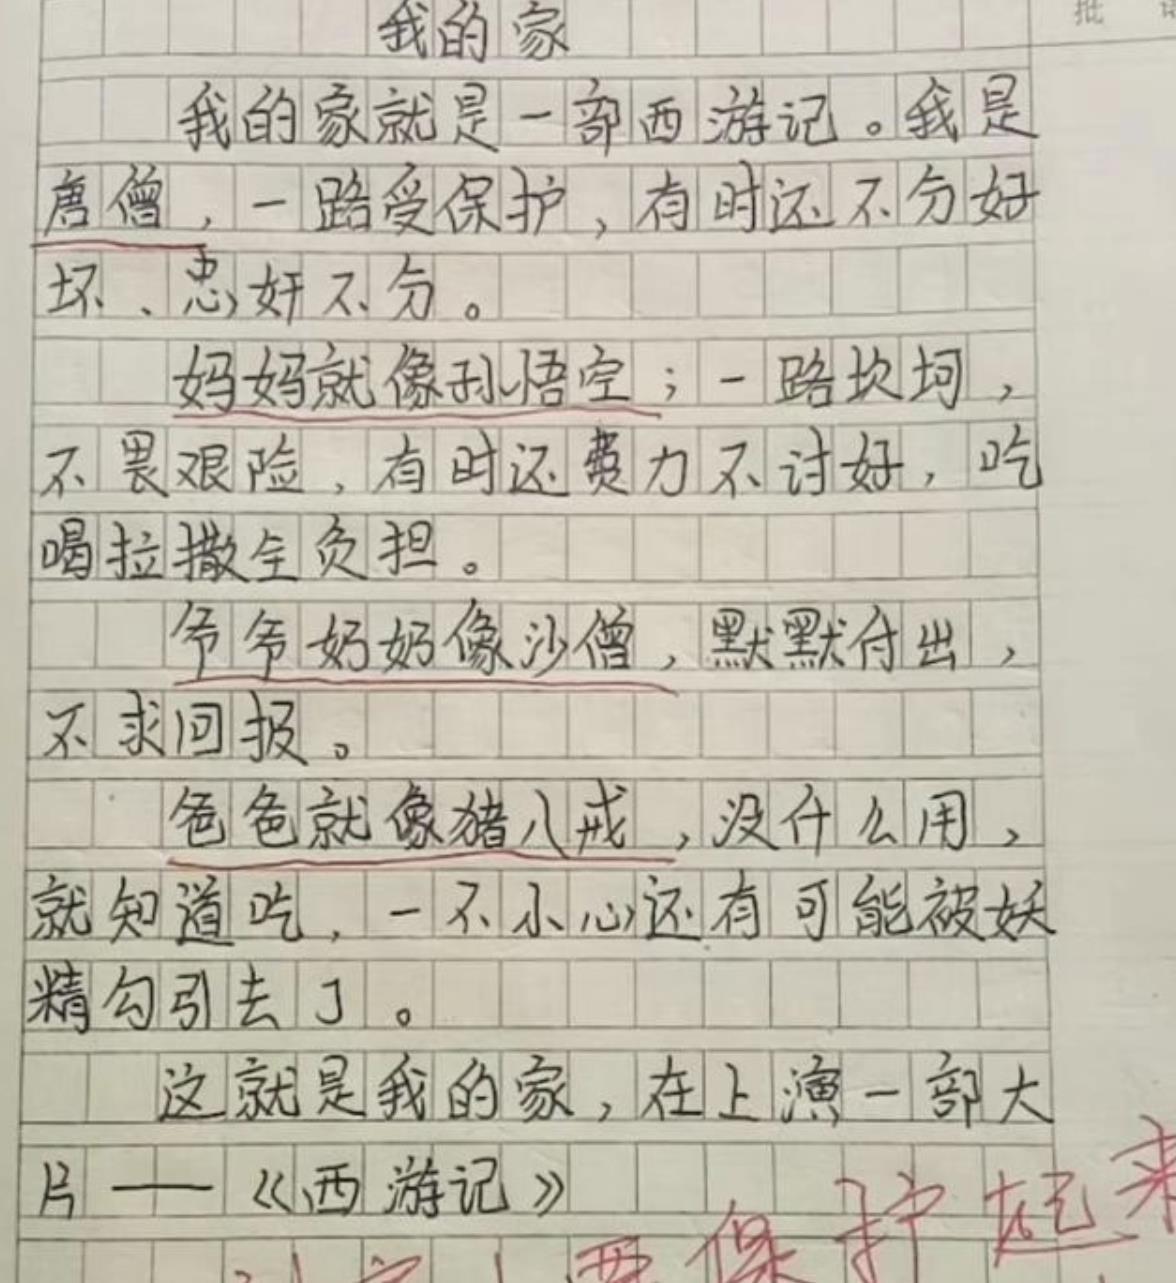 批
我的家
我的家就是一部西游记。我是
唐僧，一路受保护，有时还不分好
坏、忠奸不分。
妈妈就像孙悟空；一路坎坷，
不畏艰险，有时还费力不讨好，吃
喝拉撒全负担。
爷爷奶奶像沙僧，默默付出，
不求回报。
爸爸就像猪八戒，没什么用，
就知道吃，一不小心还有可能被妖
精勾引去了。
这就是我的家，在上演一部大
片——《西游记》
要保护起来